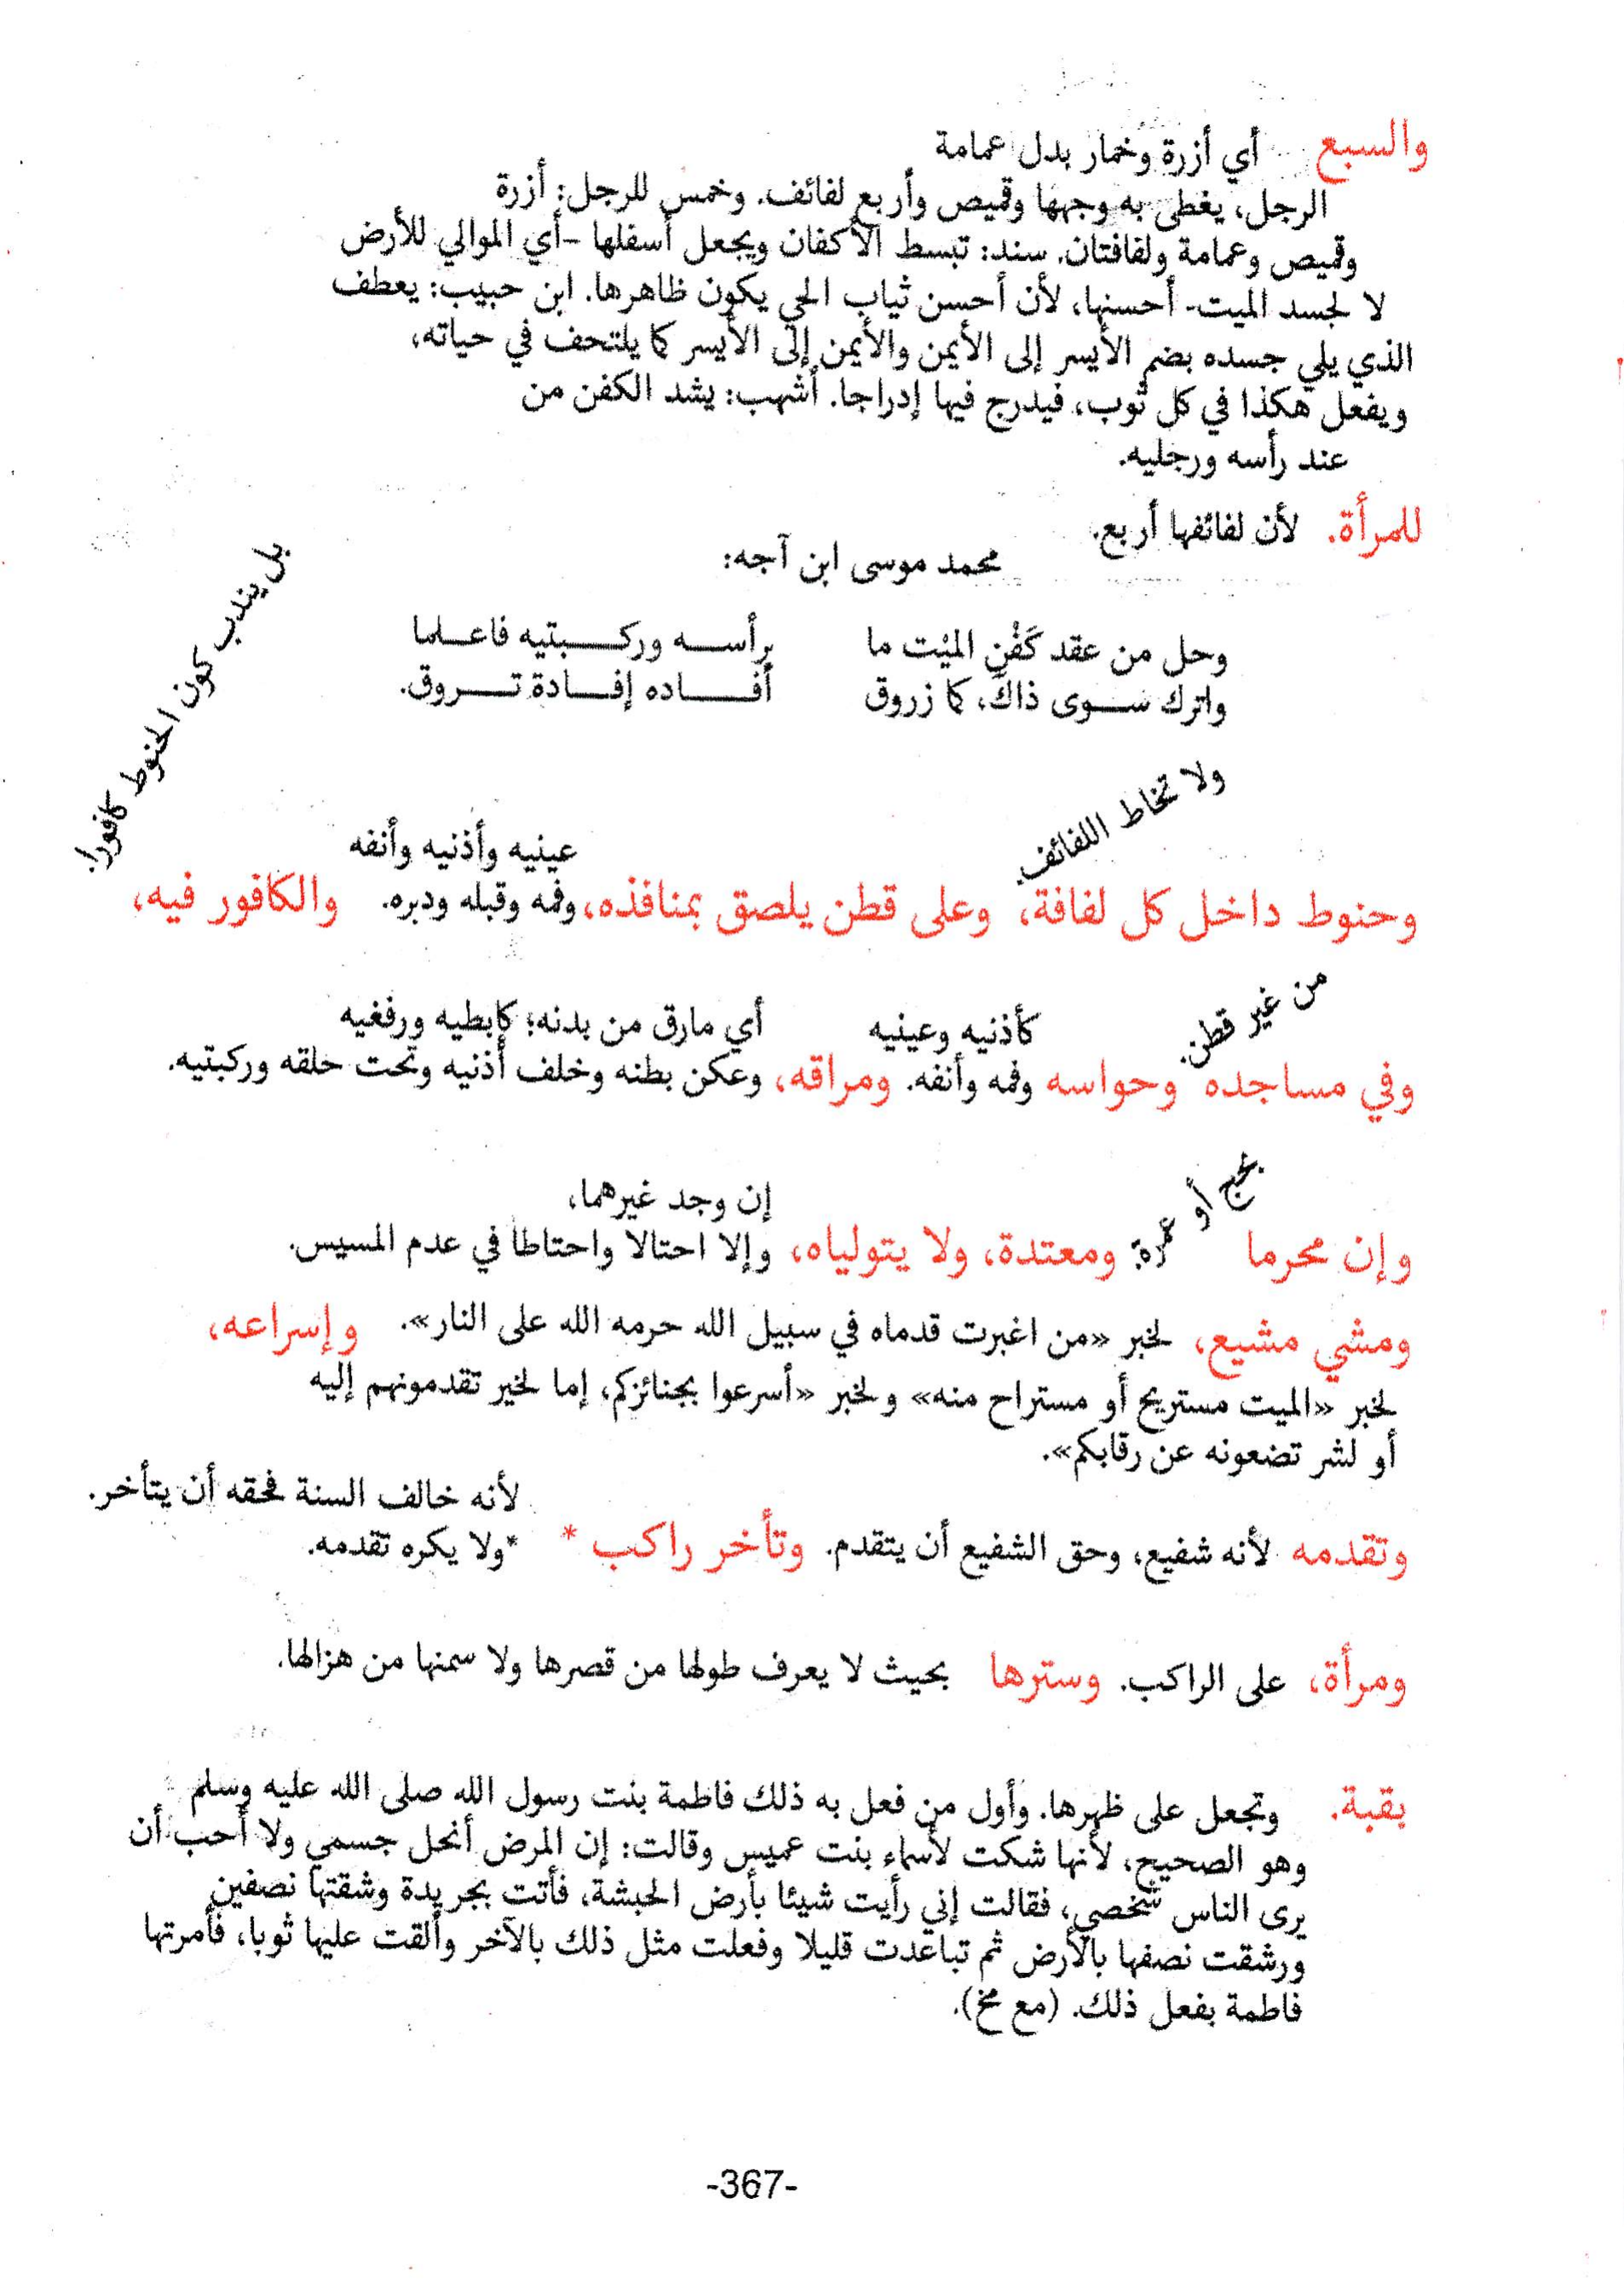 والسبع أي أزرة وخمار بدل عمامة
الرجل، يغطى به وجهها وقميص وأربع لفائف. وخمس للرجل: أزرة
وقميص وعمامة ولفافتان. سند: تبسط الأكفان ويجعل أسفلها -أي الموالي للأرض
لا لجسد الميت- أحسنها، لأن أحسن ثياب الحي يكون ظاهرها. ابن حبيب: يعطف
الذي يلي جسده بضم الأيسر إلى الأيمن والأيمن إلى الأيسر كما يلتحف في حياته،
ويفعل هكذا في كل ثوب، فيدرج فيها إدراجا. أشهب: يشد الكفن من
عند رأسه ورجليه.
للمرأة. لأن لفائفها أربع.
محمد موسى ابن آجه:
وحل من عقد كَفْنِ الميْت ما برأسه وركبتيه فاعلما
واترك سوى ذاك، كما زروق أفاده إفادة تروق.
بل يندب كون الحنوط كافورا.
ولا تخاط اللفائف.
عينيه وأذنيه وأنفه
وحنوط داخل كل لفافة، وعلى قطن يلصق بمنافذه، وفمه وقبله ودبره. والكافور فيه،
من غير قطن.
كأذنيه وعينيه أي مارق من بدنه؛ كإبطيه ورفغيه
وفي مساجده وحواسه وفمه وأنفه. ومراقه، وعكن بطنه وخلف أذنيه وتحت حلقه وركبتيه.
بحج أو عمرة.
إن وجد غيرهما،
وإن محرما ومعتدة، ولا يتولياه، وإلا احتالا واحتاطا في عدم المسيس.
ومشي مشيع، لخبر «من اغبرت قدماه في سبيل الله حرمه الله على النار». وإسراعه،
لخبر «الميت مستريح أو مستراح منه» ولخبر «أسرعوا بجنائزكم، إما لخير تقدمونهم إليه
أو لشر تضعونه عن رقابكم».
لأنه خالف السنة فحقه أن يتأخر.
وتقدمه لأنه شفيع، وحق الشفيع أن يتقدم. وتأخر راكب * *ولا يكره تقدمه.
ومرأة، على الراكب. وسترها بحيث لا يعرف طولها من قصرها ولا سمنها من هزالها.
بقبة. وتجعل على ظهرها. وأول من فعل به ذلك فاطمة بنت رسول الله صلى الله عليه وسلم
وهو الصحيح، لأنها شكت لأسماء بنت عميس وقالت: إن المرض أنحل جسمي ولا أحب أن
يرى الناس شخصي، فقالت إني رأيت شيئا بأرض الحبشة، فأتت بجريدة وشقتها نصفين
ورشقت نصفها بالأرض ثم تباعدت قليلا وفعلت مثل ذلك بالآخر وألقت عليها ثوبا، فأمرتها
فاطمة بفعل ذلك. (مع مخ).
-367-